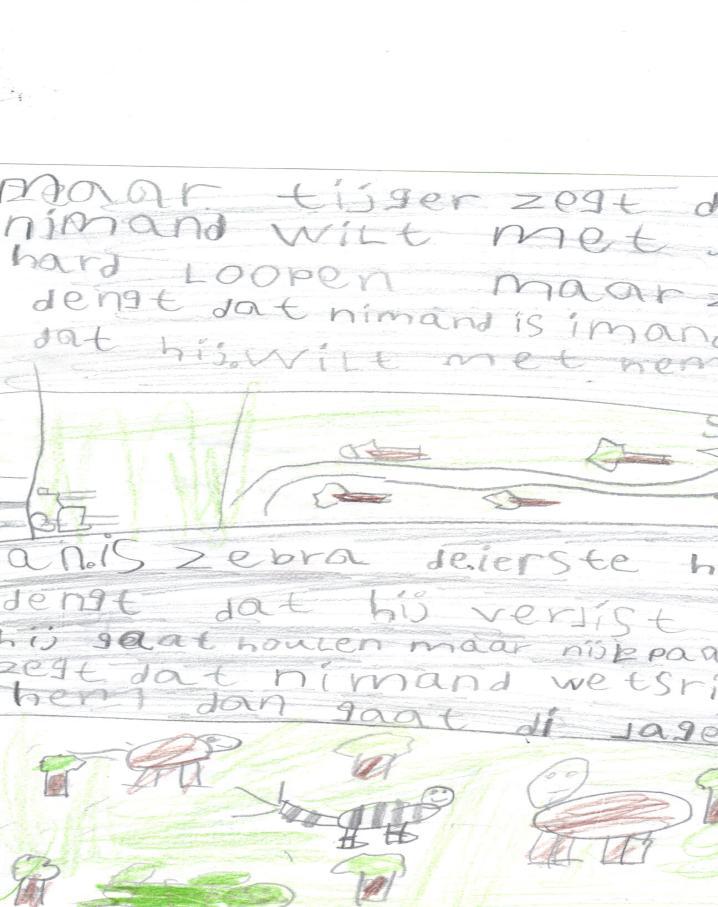 maar tijger zegt d
nimand wilt met
hard loopen maar z
dengt dat nimand is iman
dat hij wilt met hem
an.is zebra deierste h
dengt dat hij verlist
hij gaat houlen maar nijlpaa
zegt dat nimand wetsri
hem dan gaat di jage